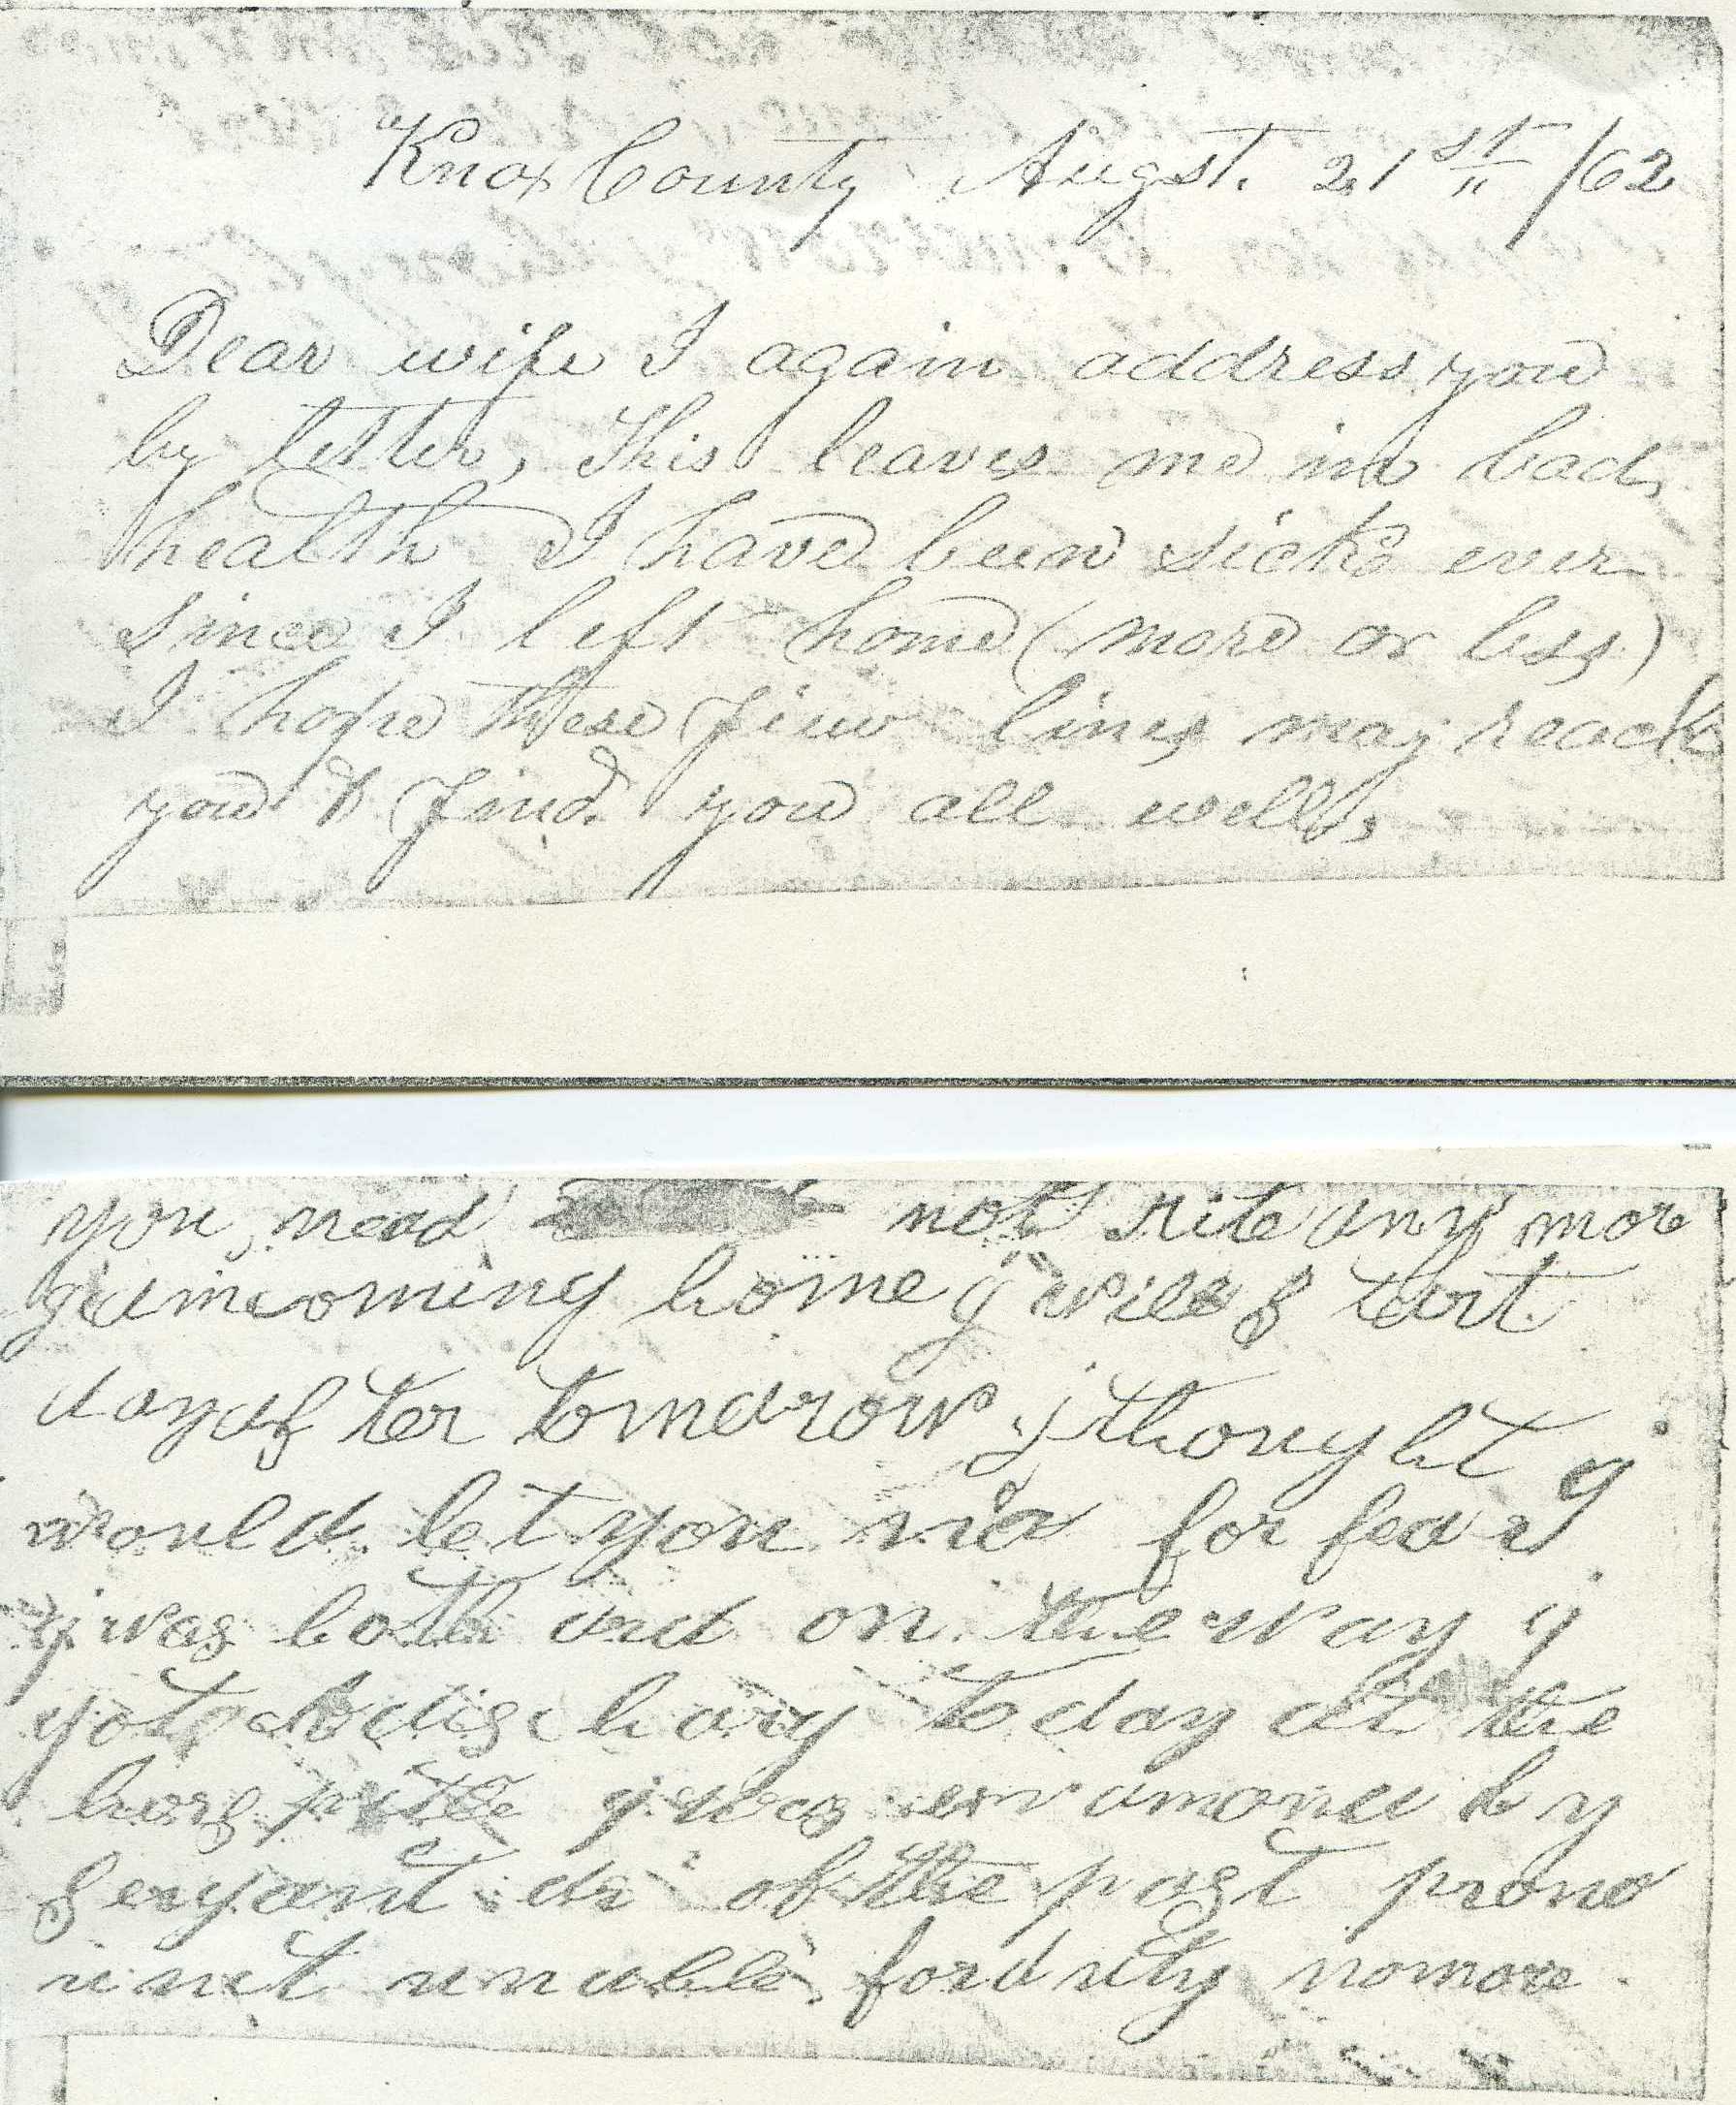 Knox County Augst. 21st /62
Dear wife I again address you
by letter, This leaves me in bad
health I have been sick ever
since I left home (more or less)
I hope these fiew lines may reach
you & find you all well,
you need not rite any mor
i am coming home i will start
day after tomarow i thought i
would let you no for fear
i was bothard on the way i
got discharg to day at the
horspitle i was by
serjant of the past prono
unct unable for duty no more.